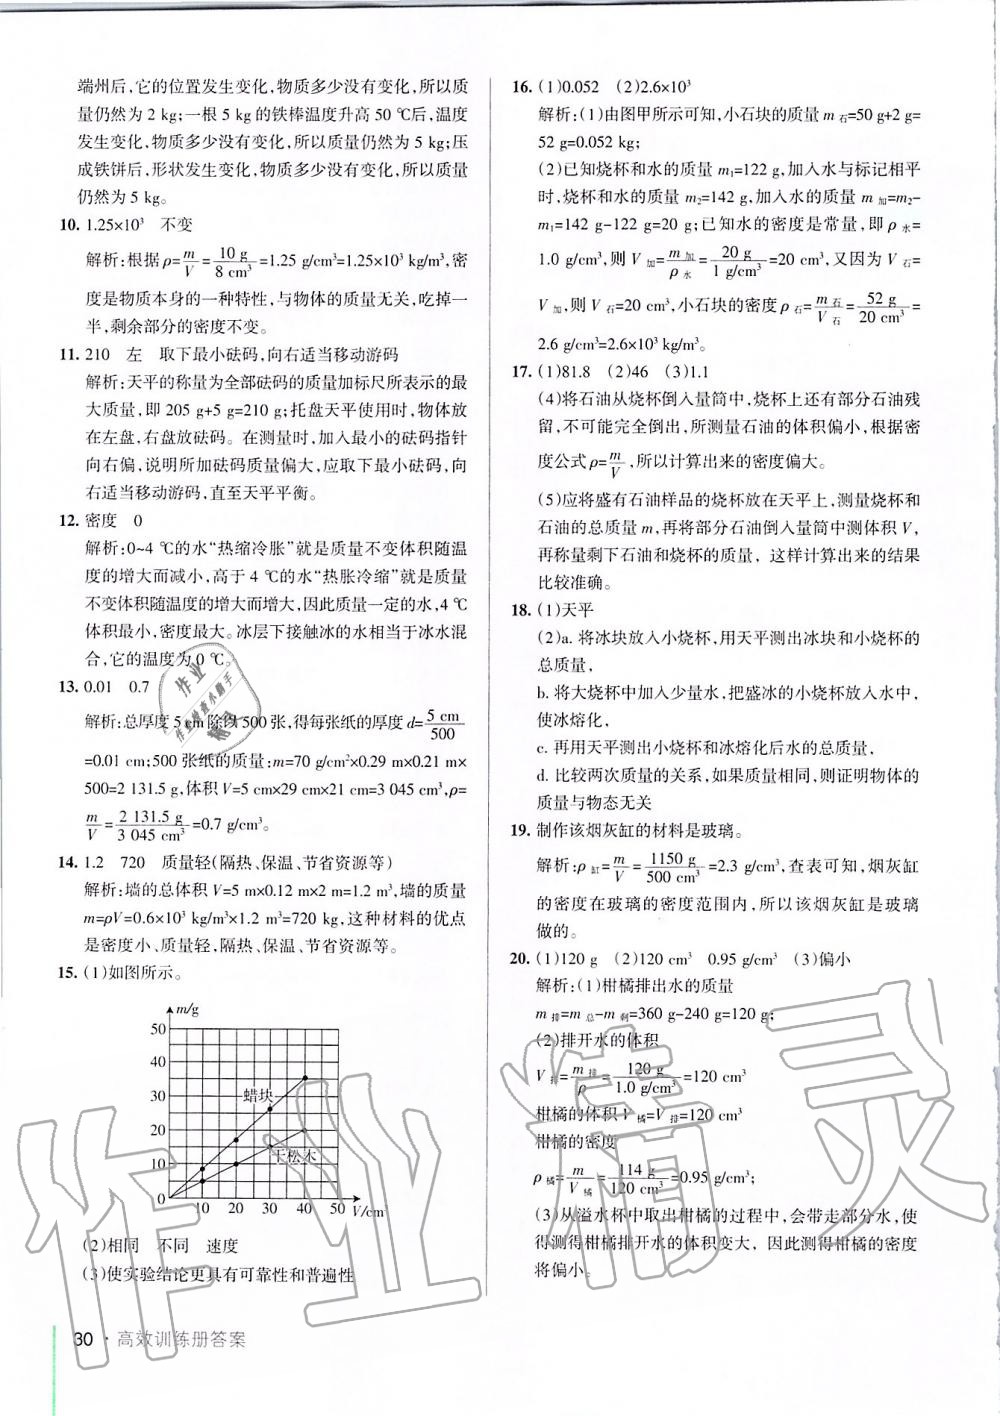 端州后,它的位置发生变化,物质多少没有变化,所以质
量仍然为 2 kg;一根 5 kg的铁棒温度升高 50 ℃后,温度
发生变化,物质多少没有变化,所以质量仍然为 5 kg;压
成铁饼后,形状发生变化,物质多少没有变化,所以质量
仍然为 5 kg。
10. 1.25×10³ 不变
解析:根据 ρ=m/V=10 g/8 cm³=1.25 g/cm³=1.25×10³ kg/m³,密
度是物质本身的一种特性,与物体的质量无关,吃掉一
半,剩余部分的密度不变。
11. 210 左 取下最小砝码,向右适当移动游码
解析:天平的称量为全部砝码的质量加标尺所表示的最
大质量,即 205 g+5 g=210 g;托盘天平使用时,物体放
在左盘,右盘放砝码。在测量时,加入最小的砝码指针
向右偏,说明所加砝码质量偏大,应取下最小砝码,向
右适当移动游码,直至天平平衡。
12. 密度 0
解析:0~4 ℃的水“热缩冷胀”就是质量不变体积随温
度的增大而减小,高于 4 ℃的水“热胀冷缩”就是质量
不变体积随温度的增大而增大,因此质量一定的水,4 ℃
体积最小,密度最大。冰层下接触冰的水相当于冰水混
合,它的温度为 0 ℃。
13. 0.01 0.7
解析:总厚度 5 cm 除以 500 张,得每张纸的厚度 d=5 cm/500
=0.01 cm;500 张纸的质量:m=70 g/cm²×0.29 m×0.21 m×
500=2 131.5 g,体积 V=5 cm×29 cm×21 cm=3 045 cm³,ρ=
m/V=2 131.5 g/3 045 cm³=0.7 g/cm³。
14. 1.2 720 质量轻(隔热、保温、节省资源等)
解析:墙的总体积 V=5 m×0.12 m×2 m=1.2 m³,墙的质量
m=ρV=0.6×10³ kg/m³×1.2 m³=720 kg,这种材料的优点
是密度小、质量轻,隔热、保温、节省资源等。
15. (1)如图所示。
m/g
50
40
30
20
10
0
蜡块
干松木
10 20 30 40 50 V/cm
(2)相同 不同 速度
(3)使实验结论更具有可靠性和普遍性
30 · 高效训练册答案
16. (1)0.052 (2)2.6×10³
解析:(1)由图甲所示可知,小石块的质量 m石=50 g+2 g=
52 g=0.052 kg;
(2)已知烧杯和水的质量 m₁=122 g,加入水与标记相平
时,烧杯和水的质量 m₂=142 g,加入水的质量 m加=m₂-
m₁=142 g-122 g=20 g;已知水的密度是常量,即 ρ水=
1.0 g/cm³,则 V加=m加/ρ水=20 g/1 g/cm³=20 cm³,又因为 V石=
V加,则 V石=20 cm³,小石块的密度 ρ石=m石/V石=52 g/20 cm³=
2.6 g/cm³=2.6×10³ kg/m³。
17. (1)81.8 (2)46 (3)1.1
(4)将石油从烧杯倒入量筒中,烧杯上还有部分石油残
留,不可能完全倒出,所测量石油的体积偏小,根据密
度公式 ρ=m/V,所以计算出来的密度偏大。
(5)应将盛有石油样品的烧杯放在天平上,测量烧杯和
石油的总质量 m,再将部分石油倒入量筒中测体积 V,
再称量剩下石油和烧杯的质量,这样计算出来的结果
比较准确。
18. (1)天平
(2)a. 将冰块放入小烧杯,用天平测出冰块和小烧杯的
总质量,
b. 将大烧杯中加入少量水,把盛冰的小烧杯放入水中,
使冰熔化,
c. 再用天平测出小烧杯和冰熔化后水的总质量,
d. 比较两次质量的关系,如果质量相同,则证明物体的
质量与物态无关
19. 制作该烟灰缸的材料是玻璃。
解析:ρ缸=m/V=1150 g/500 cm³=2.3 g/cm³,查表可知,烟灰缸
的密度在玻璃的密度范围内,所以该烟灰缸是玻璃
做的。
20. (1)120 g (2)120 cm³ 0.95 g/cm³ (3)偏小
解析:(1)柑橘排出水的质量
m排=m总-m剩=360 g-240 g=120 g;
(2)排开水的体积
V排=m排/ρ=120 g/1.0 g/cm³=120 cm³
柑橘的体积 V橘=V排=120 cm³
柑橘的密度
ρ橘=m/V橘=114 g/120 cm³=0.95 g/cm³;
(3)从溢水杯中取出柑橘的过程中,会带走部分水,使
得测得柑橘排开水的体积变大,因此测得柑橘的密度
将偏小。
作业精灵